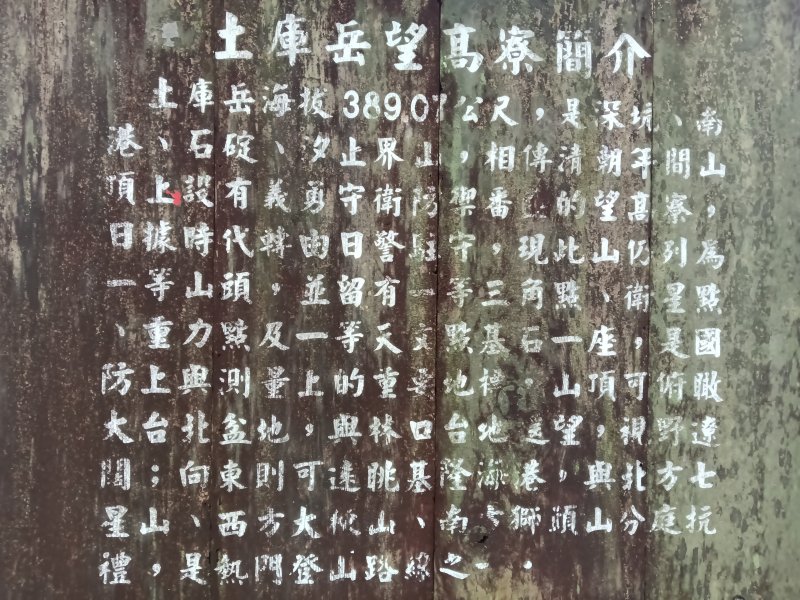 土庫岳望高寮簡介
土庫岳海拔389.07公尺,是深坑、南
港、石碇、汐止界山,相傳清朝年間山
頂上設有義勇守衛防禦番的望高寮,
日據時代轉由日警駐守,現此山仍列為
一等山頭,並留有一等三角點、衛星點
、重力點及一等天文點基石一座,是國
防上與測量上的重要地標。山頂可俯瞰
大台北盆地,與林口台地望,視野遼
闊;向東則可遠眺基隆海港,與北方七
星山、西方大山、南方獅頭山分庭抗
禮,是熱門登山路線之一。